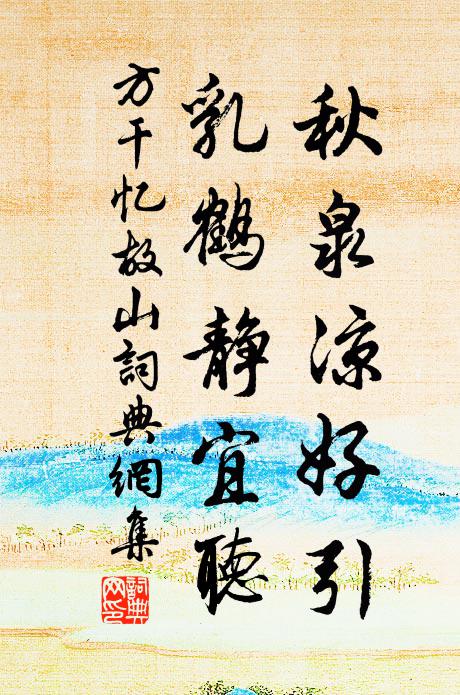 秋泉凉好引
乳鹤静宜聴
方干忆故山詞典網集
詞典